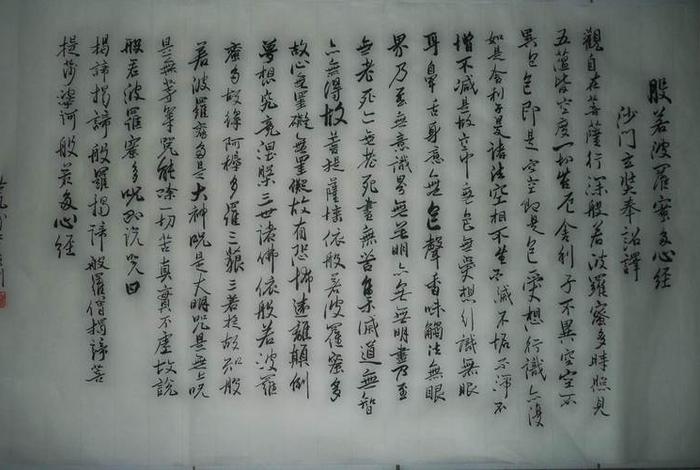 般若波羅蜜多心經
沙门玄奘奉詔譯
觀自在菩薩行深般若波羅蜜多時照見
五蘊皆空度一切苦厄舍利子不異空空不
異色色即是空空即是色受想行識亦復
如是舍利子是諸法空相不生不滅不垢不淨不
增不减是故空中無色無受想行識無眼
耳鼻舌身意無色聲香味觸法無眼
界乃至無意識界無無明亦無無明盡乃至
無老死亦無老死盡無苦集滅道無智
亦無得故菩提薩埵依般若波羅蜜多
故心無罣礙無罣礙故有恐怖遠離顛倒
夢想究竟涅槃三世諸佛依般若波羅
蜜多故得阿耨多羅三藐三菩提故知般
若波羅蜜多是大神咒是大明咒是無上咒
是無等等咒能除一切苦真實不虛故說
般若波羅蜜多咒即说咒曰
揭諦揭諦般羅揭諦般羅僧揭諦菩
提莎婆訶般若多心經